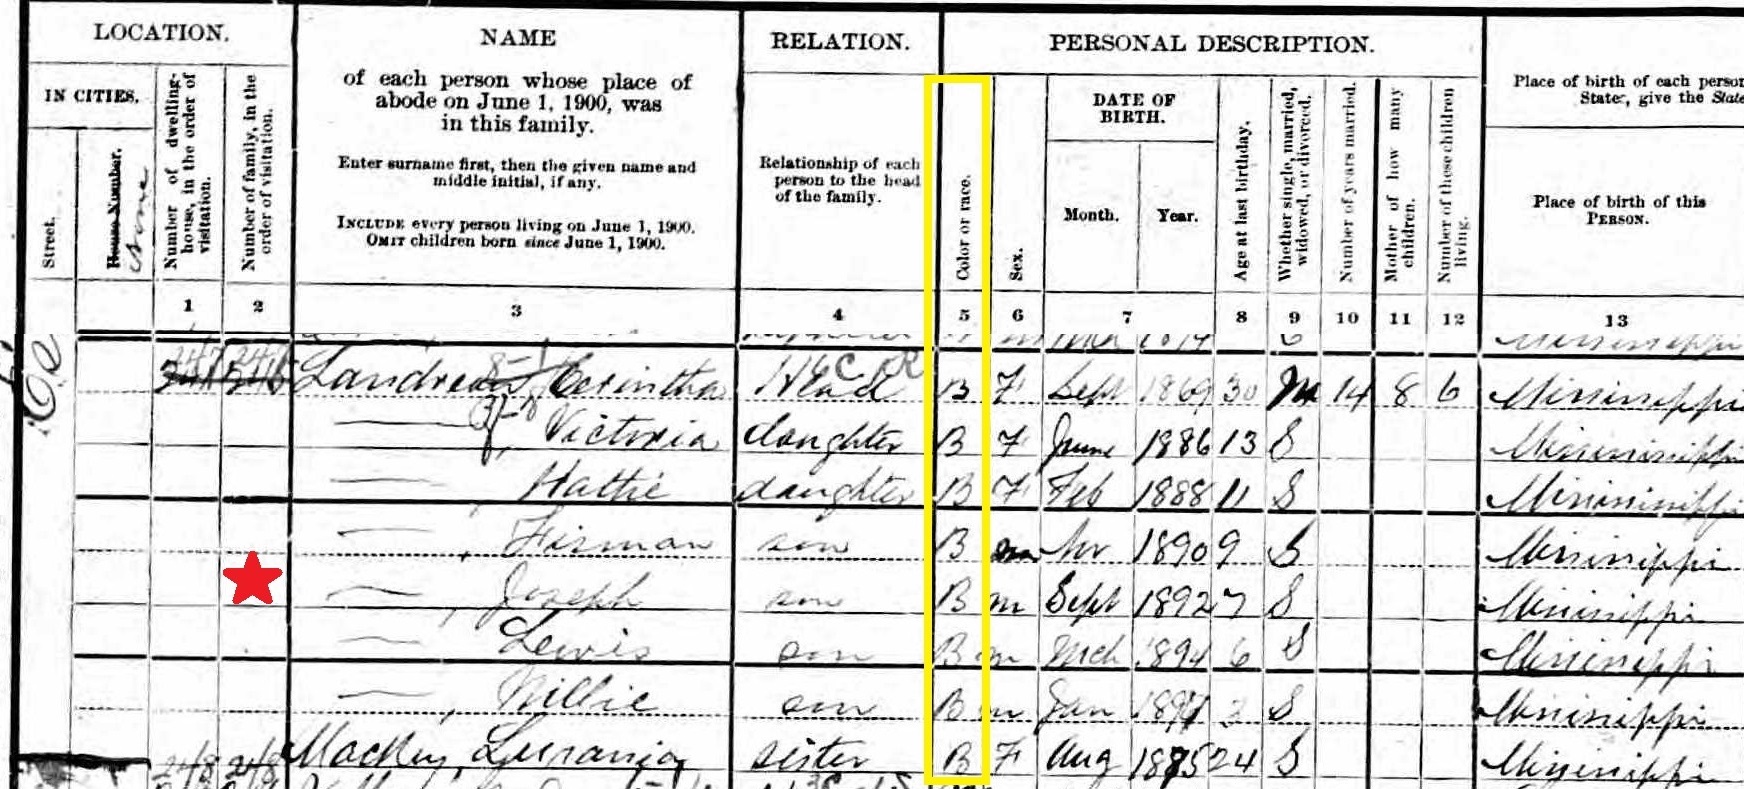 LOCATION.
NAME
RELATION.
PERSONAL DESCRIPTION.
IN CITIES.
Street.
House Number.
None
Number of dwelling-house, in the order of visitation.
Number of family, in the order of visitation.
of each person whose place of
abode on June 1, 1900, was
in this family.
Enter surname first, then the given name and
middle initial, if any.
INCLUDE every person living on June 1, 1900.
OMIT children born since June 1, 1900.
Relationship of each
person to the head
of the family.
Color or race.
Sex.
DATE OF
BIRTH.
Month.
Year.
Age at last birthday.
Whether single, married, widowed, or divorced.
Number of years married.
Mother of how many children.
Number of these children living.
Place of birth of each person
State, give the State
Place of birth of this
PERSON.
1 2 3 4 5 6 7 8 9 10 11 12 13
Corintha Head B F Sept 1869 30 M 14 8 6 Mississippi
Victoria daughter B F June 1886 13 S Mississippi
Hattie daughter B F Feb 1888 11 S Mississippi
Firman son B m Nov 1890 9 S Mississippi
Joseph son B m Sept 1892 7 S Mississippi
Lewis son B m Mch 1894 6 S Mississippi
Willie son B m Jan 1897 3 S Mississippi
Mackey, Lurania sister B F Aug 1875 24 S Mississippi